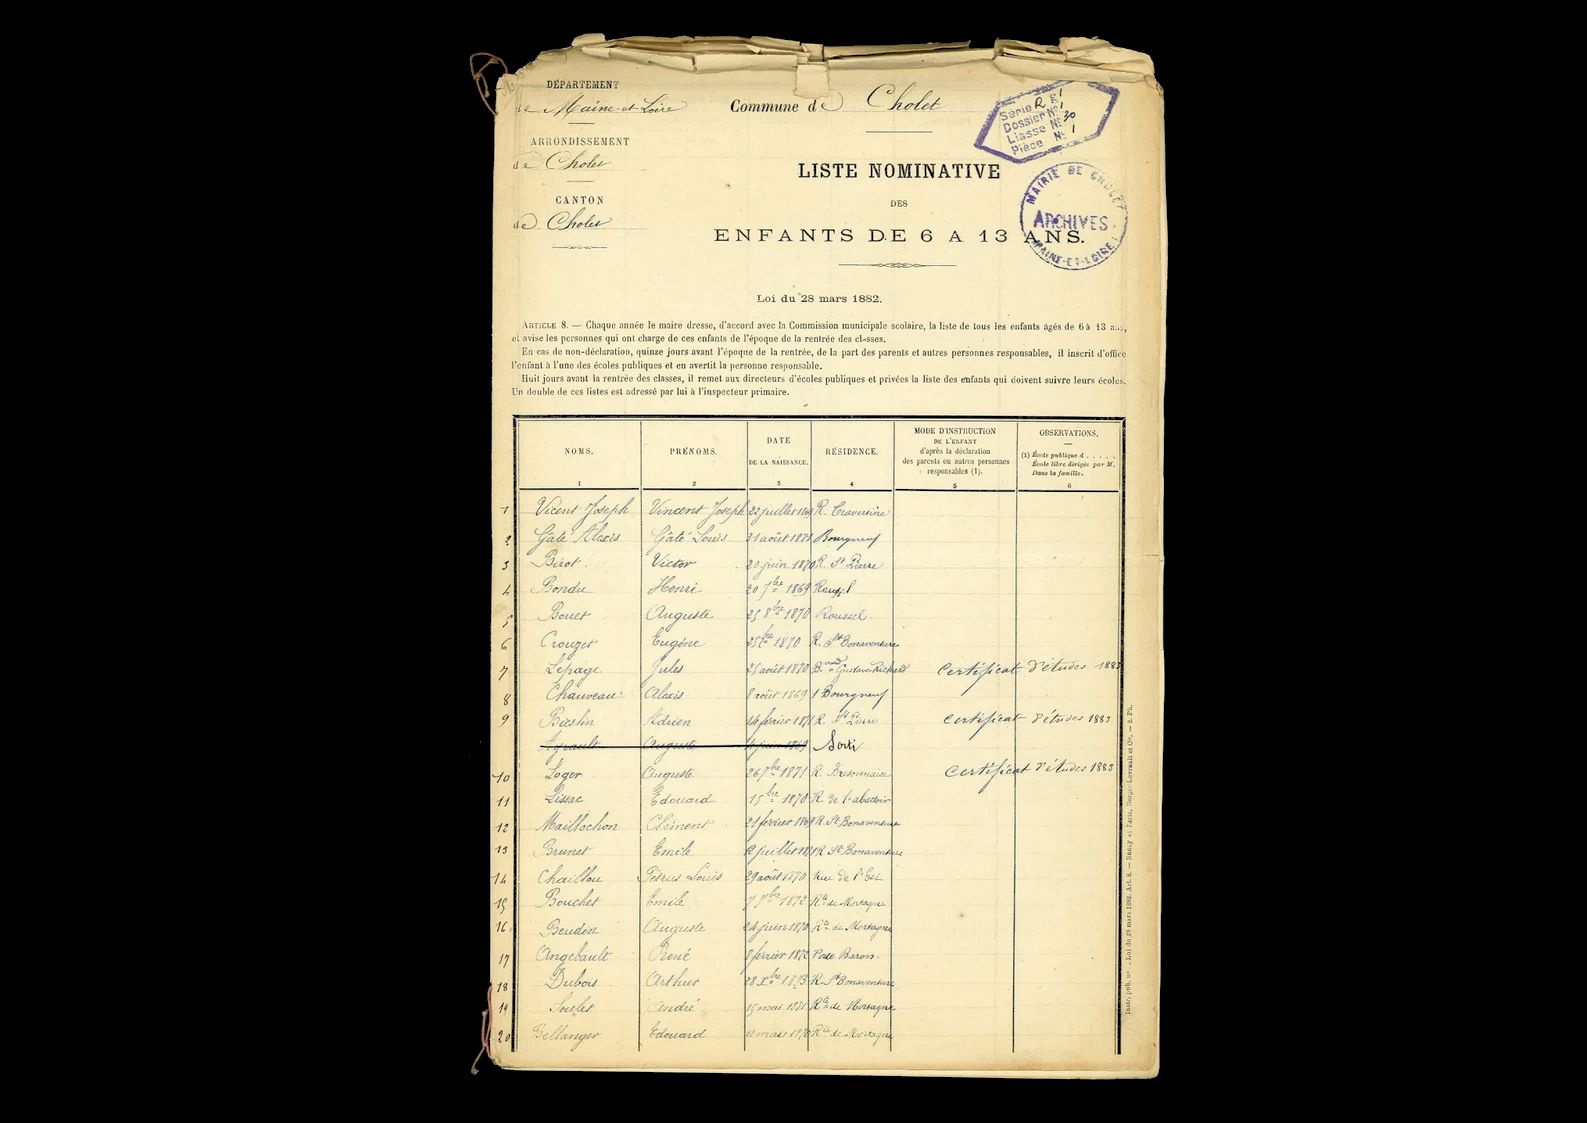 DÉPARTEMENT
de Maine-et-Loire
Commune de Cholet
Série R
Dossier N° 1
Liasse N° 30
Pièce N° 1
ARRONDISSEMENT
de Cholet
LISTE NOMINATIVE
MAIRIE DE CHOLET
ARCHIVES
MAINE-ET-LOIRE
CANTON
de Cholet
DES
ENFANTS DE 6 A 13 ANS.
Loi du 28 mars 1882.
ARTICLE 8. — Chaque année le maire dresse, d'accord avec la Commission municipale scolaire, la liste de tous les enfants âgés de 6 à 13 ans,
et avise les personnes qui ont charge de ces enfants de l'époque de la rentrée des classes.
En cas de non-déclaration, quinze jours avant l'époque de la rentrée, de la part des parents et autres personnes responsables, il inscrit d'office
l'enfant à l'une des écoles publiques et en avertit la personne responsable.
Huit jours avant la rentrée des classes, il remet aux directeurs d'écoles publiques et privées la liste des enfants qui doivent suivre leurs écoles.
Un double de ces listes est adressé par lui à l'inspecteur primaire.
NOMS.
1
PRÉNOMS.
2
DATE
DE LA NAISSANCE.
3
RÉSIDENCE.
4
MODE D'INSTRUCTION
DE L'ENFANT
d'après la déclaration
des parents ou autres personnes
responsables (1).
5
OBSERVATIONS.
(1) École publique d . . . . .
École libre dirigée par M.
Dans la famille.
6
1 Vicent Joseph Vincent Joseph 22 juillet R. Traversière
2 Gâté Alexis Gâté Louis 31 août 1871 Bourgneuf
3 Birot Victor 20 juin 1870 R. St Pierre
4 Bondu Henri 20 7bre 1869
5 Bouet Auguste 25 8bre 1870 Roussel
6 Crouzet Eugène 25 bre 1870 R. St Bonaventure
7 Lepage Jules 25 août 1870 B.vard Gustave Richard certificat d'études 1883
8 Chauveau Alexis 8 août 1869 Bourgneuf
9 Adrien 14 février 1871 R. St Pierre certificat d'études 1883
Ayrault Auguste 1869 Sorti
10 Loger Auguste 26 7bre 1871 R. Bretonnaise certificat d'études 1883
11 Lissac Edouard 15 bre 1870 R. de l'abattoir
12 Maillochon Clément 21 février 1869 R. St Bonaventure
13 Brunet Emile 12 juillet 1871 R. St Bonaventure
14 Chaillou Pétrus Louis 29 août 1870 Rue de l'Est
15 Bouchet Emile 7 7bre 1872 Rte de Mortagne
16 Beudin Auguste 24 juin 1870 Rte de Mortagne
17 Angebault René 8 février 1872 Baron
18 Dubois Arthur 28 Xbre 1873 R. St Bonaventure
19 Soulet André 15 mai 1871 Rte de Mortagne
20 Bellanger Edouard 12 mars 1872 Rte de Mortagne
Instr. pub. n° . Loi du 28 mars 1882. Art. 8. — Nancy et Paris, Berger-Levrault et Cie. — 2. Ph.